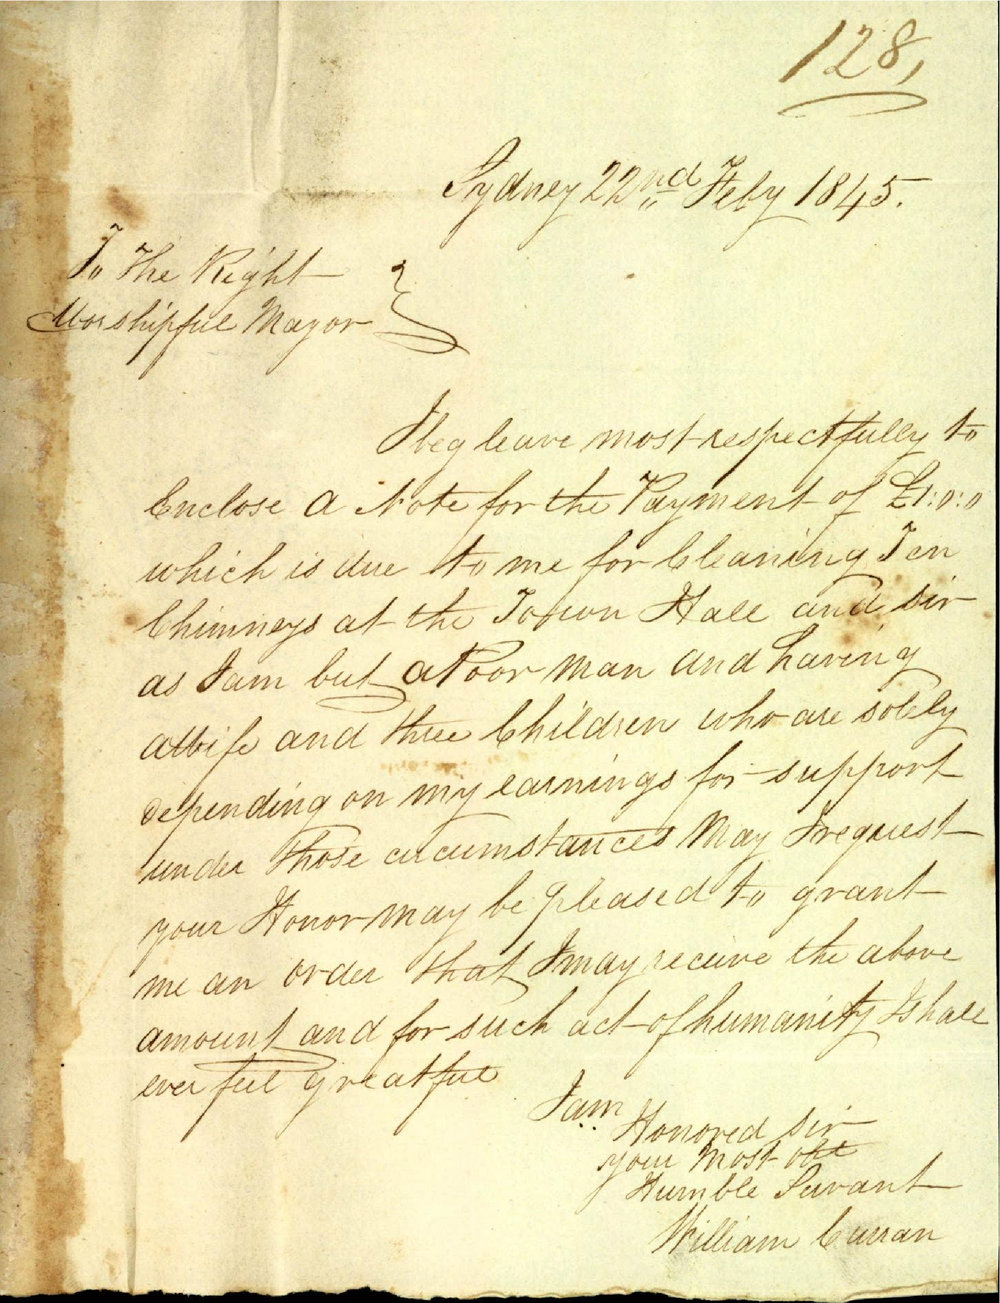 128,
Sydney 22nd Feby 1845.
To The Right
Worshipful Mayor
I beg leave most respectfully to
Enclose a Note for the Payment of £1:0:0
which is due to me for Cleaning Ten
Chimneys at the Toown Hall and Sir
as I am but a Poor Man and having
a Wife and three Children who are solely
depending on my earnings for support
under those circumstances May I request
your Honor may be pleased to grant
me an order that I may receive the above
amount and for such act of humanity I shall
ever feel greatful
I am
Honored Sir
your Most obt
Humble Servant
William Curran